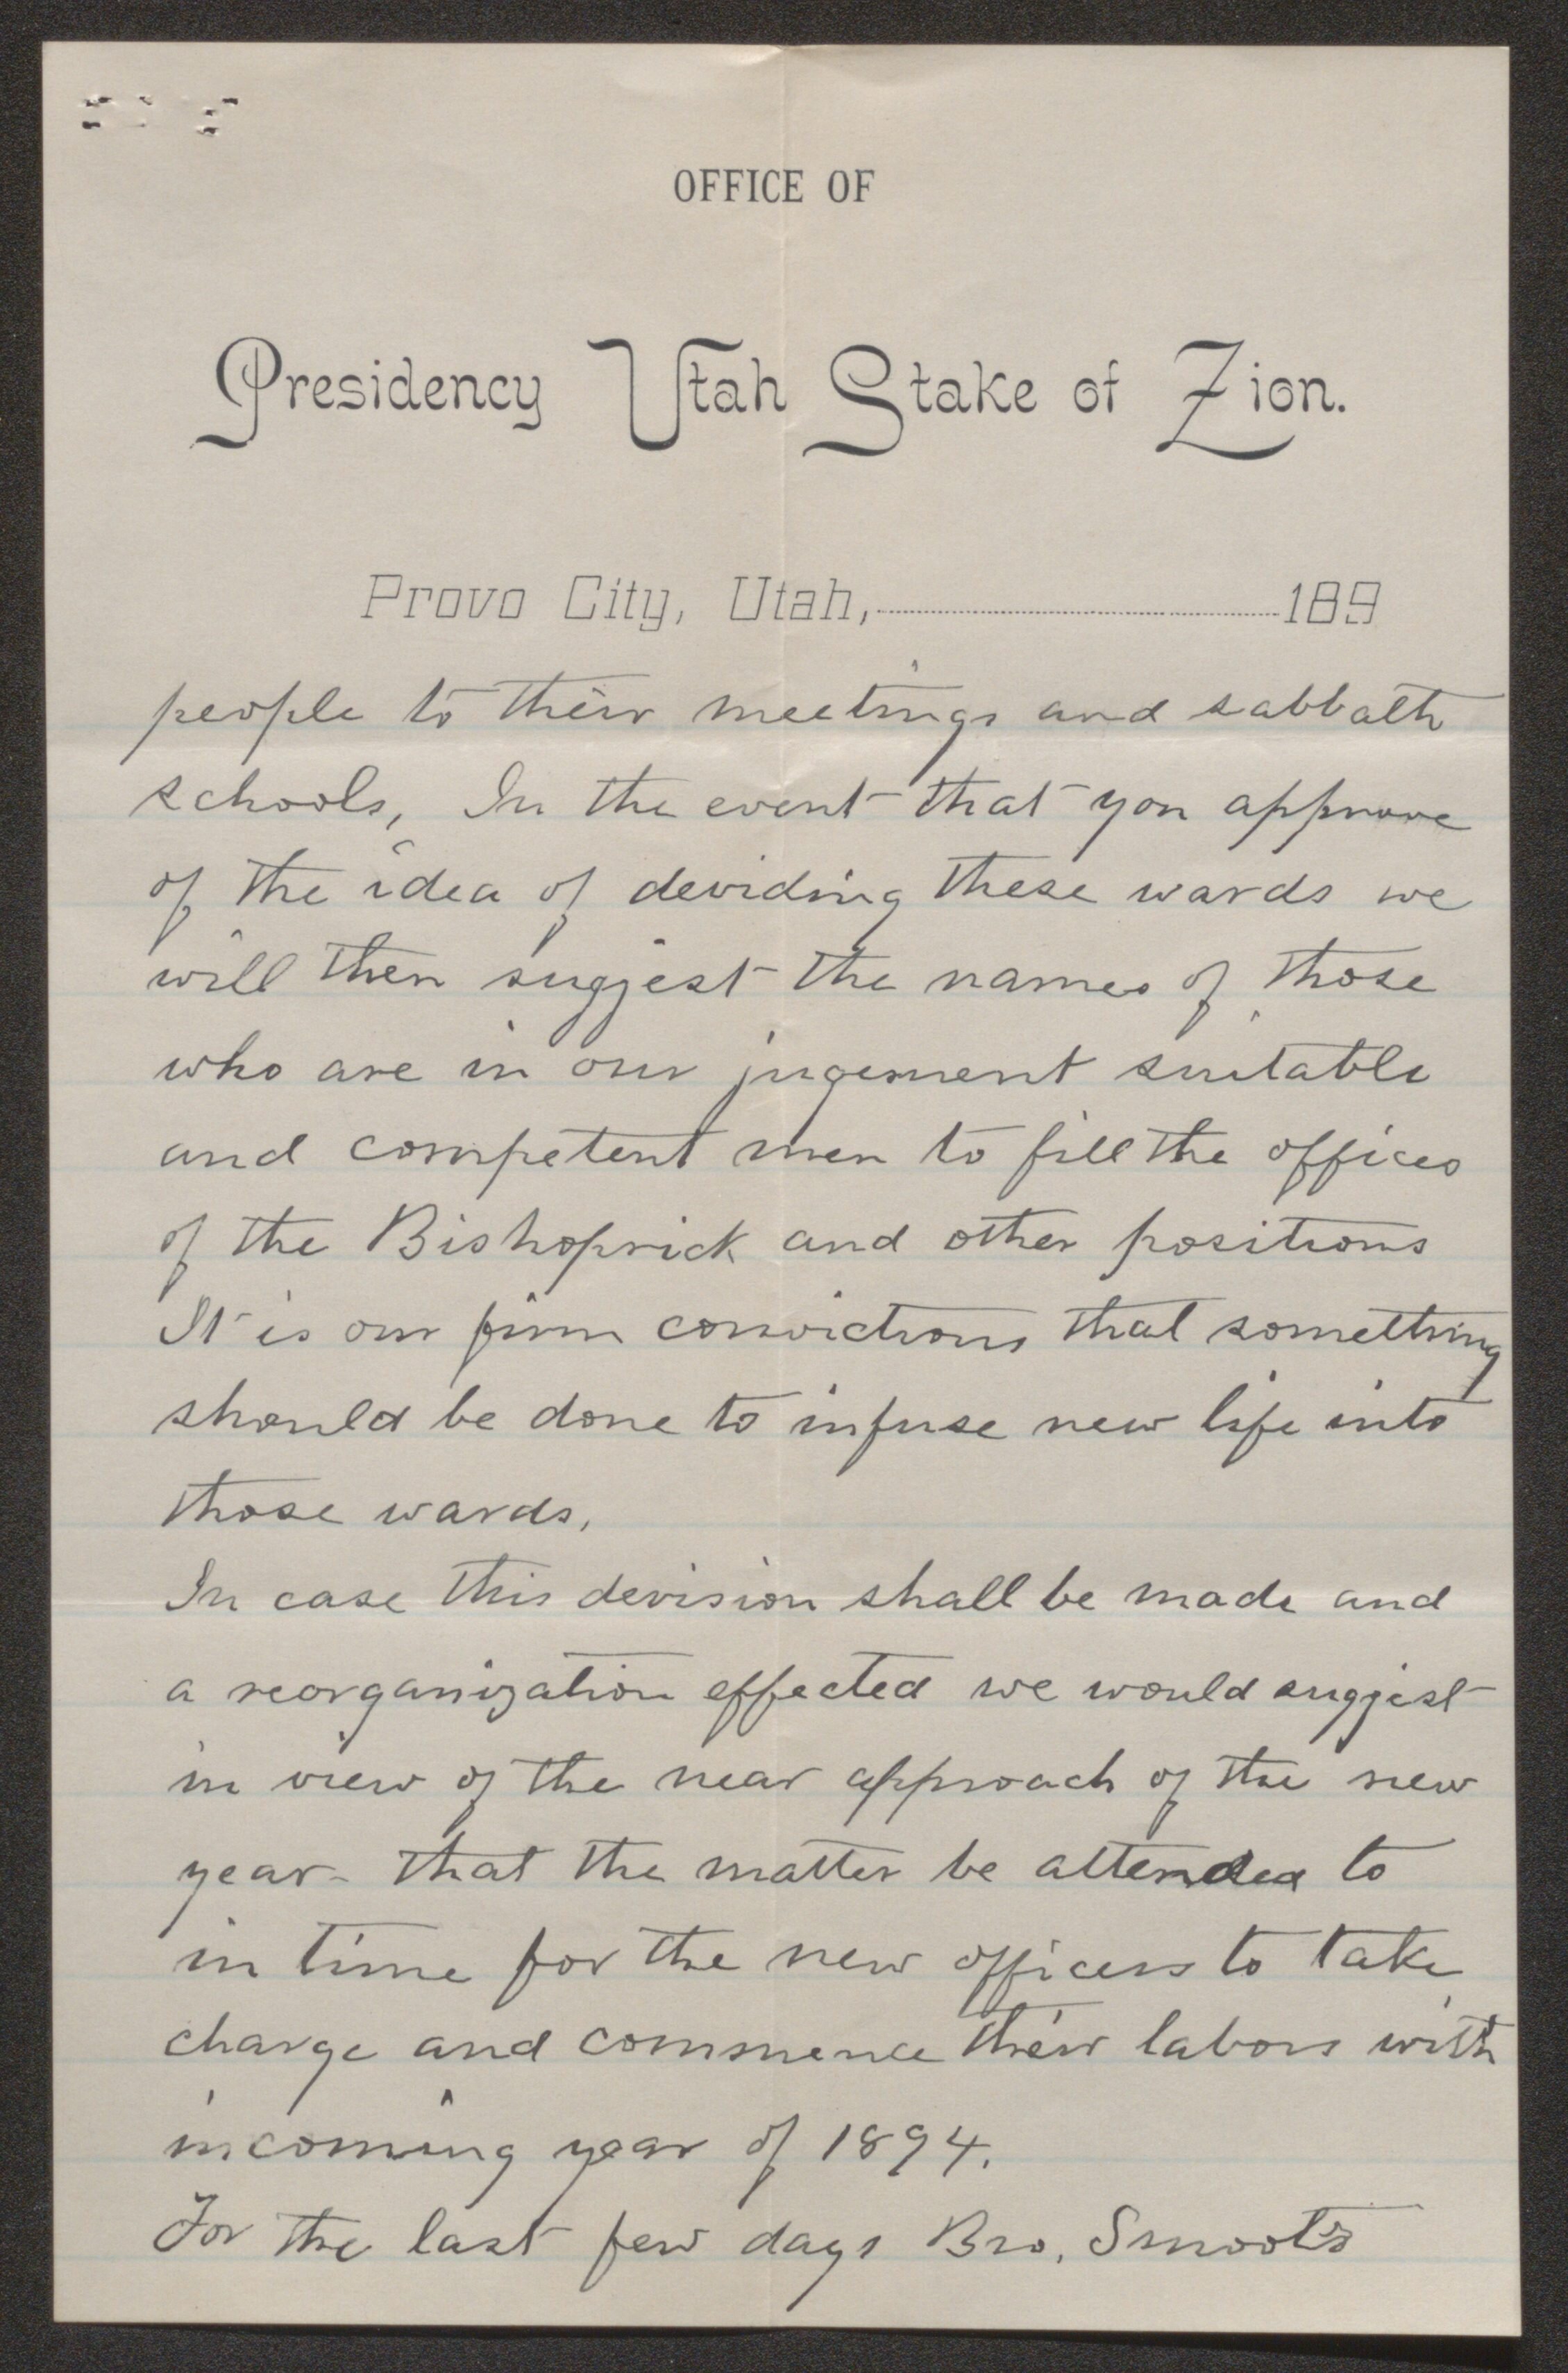 OFFICE OF
Presidency Utah Stake of Zion.
Provo City, Utah, 189
people to their meetings and sabbath
schools, In the event that you approve
of the idea of deviding these wards we
will then suggest the names of those
who are in our jugement suitable
and competent men to fill the offices
of the Bishoprick and other positions
It is our firm convictions that something
should be done to infuse new life into
those wards,
In case this devision shall be made and
a reorganization effected we would suggest
in view of the near approach of the new
year- that the matter be attended to
in time for the new officers to take
charge and commence their labors with
incoming year of 1894.
For the last few days Bro. Smoot's